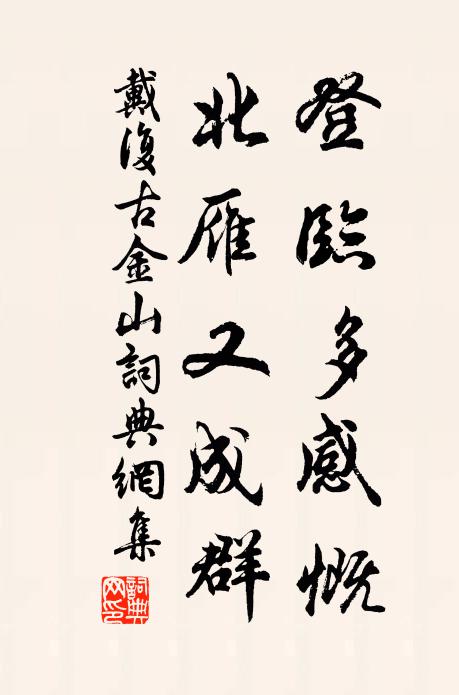 登臨多感慨
北雁又成群
戴復古金山詞典網集
詞典網印